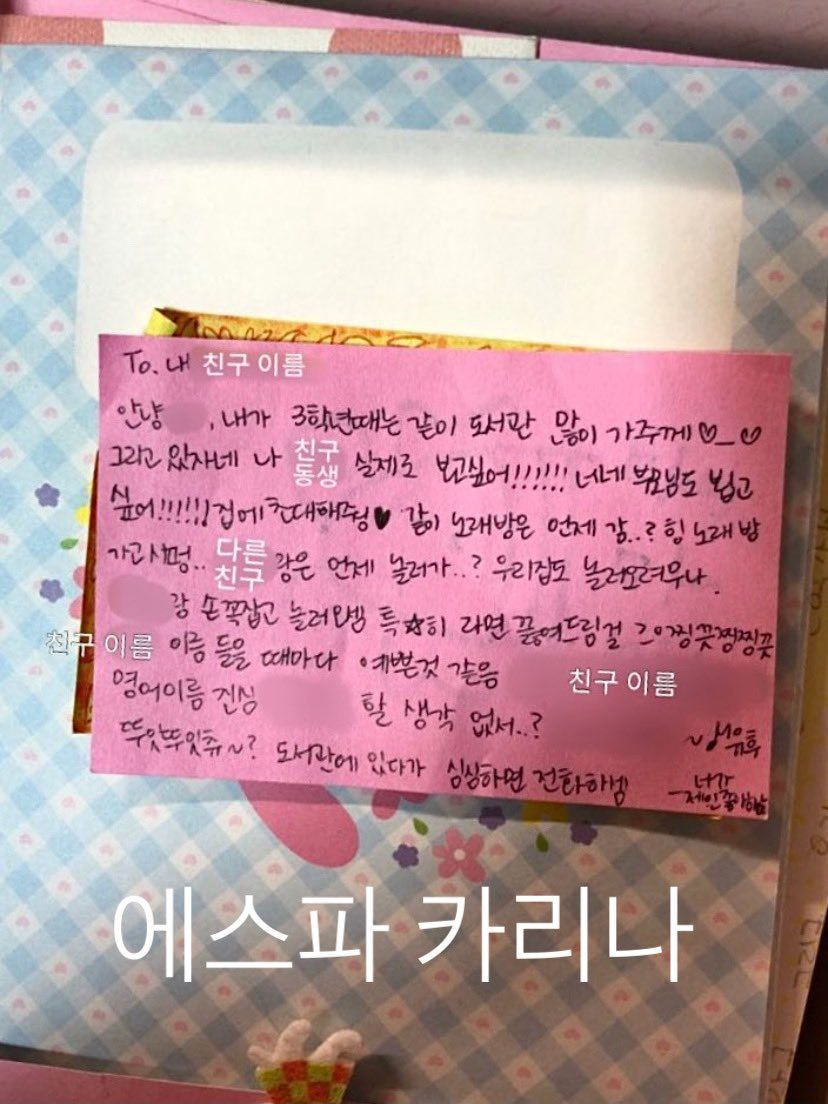 To. 내 친구 이름
안냥 , 내가 3학년때는 같이 도서관 많이 가주께♡_♡
그리고 있자네 나 친구 동생 실제로 보고싶어!!!!!! 너네 부모님도 뵙고
싶어!!!!!! 집에 초대해줭♥ 같이 노래방은 언제 감..? 힝 노래방
가고시펑.. 다른 친구 랑은 언제 놀러가..? 우리집도 놀러오려무나.
랑 손꼭잡고 놀러오셈 특☆히 라면 끓여드림걸
친구 이름 이름 들을 때마다 예쁜것 같음 친구 이름
영어이름 진심 할 생각 없서..?
뚜앗뚜잇츄~? 도서관에 있다가 심심하면 전화하셈
너가
에스파 카리나